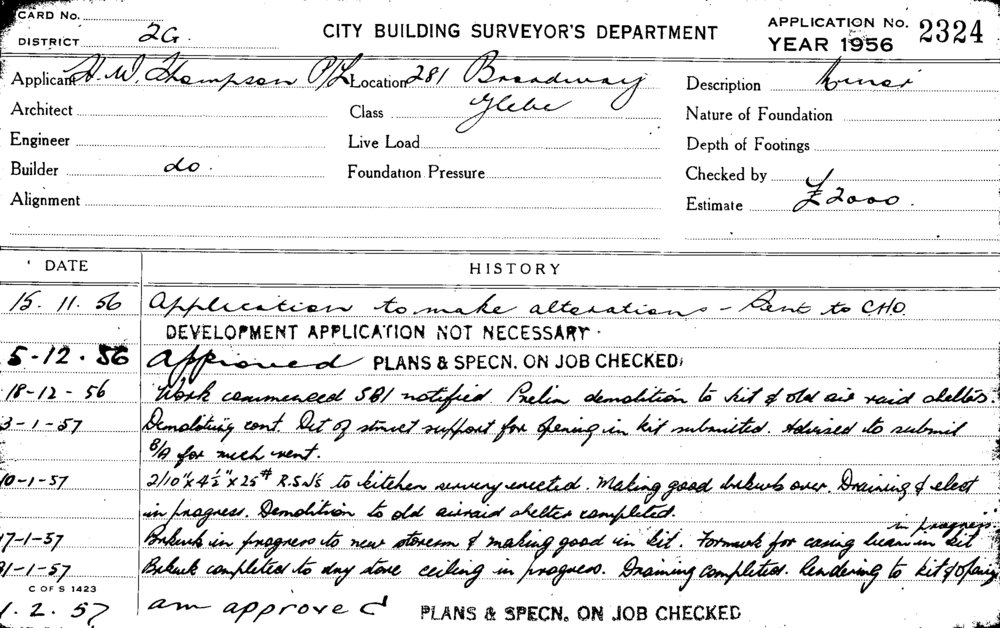 CARD No.
DISTRICT 2G.
CITY BUILDING SURVEYOR'S DEPARTMENT
APPLICATION No. 2324
YEAR 1956
Applicant H. W. Thompson P/L Location 281 Broadway Description
Glebe
Architect Class Nature of Foundation
Engineer Live Load Depth of Footings
Builder do. Foundation Pressure Checked by
Alignment Estimate £2000.
DATE HISTORY
15. 11. 56 Application to make alterations - Sent to CHO.
DEVELOPMENT APPLICATION NOT NECESSARY.
5-12-56 Approved PLANS & SPECN. ON JOB CHECKED.
18-12-56 Work commenced SBI notified. Prelim demolition to kit & old air raid shelters.
3-1-57 Demolition cont. Det of struct support for opening in kit submitted. Advised to submit
B/A for mech vent.
0-1-57 2/10"x4½"x25# R.S.J's to kitchen servery erected. Making good brkwk over. Draining & elect
in progress. Demolition to old airraid shelter completed.
in progress.
7-1-57 Brkwk in progress to new storerm & making good in kit. Formwk for casing beam in kit
31-1-57 Brkwk completed to dry store ceiling in progress. Draining completed. Rendering to kit & opening
C OF S 1423
1. 2. 57 am approved PLANS & SPECN. ON JOB CHECKED